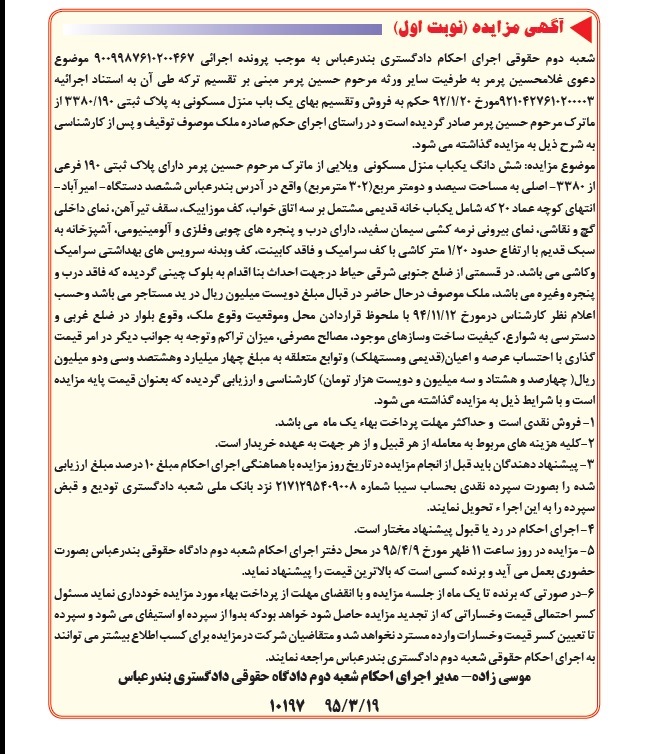 آگهی مزایده (نوبت اول)
شعبه دوم حقوقی اجرای احکام دادگستری بندرعباس به موجب پرونده اجرائی ۹۰۰۹۹۸۷۶۱۰۲۰۰۴۶۷ موضوع
دعوی غلامحسین پرمر به طرفیت سایر ورثه مرحوم حسین پرمر مبنی بر تقسیم ترکه طی آن به استناد اجرائیه
۹۲۱۰۴۲۷۶۱۰۲۰۰۰۰۳مورخ ۹۲/۱/۲۰ حکم به فروش وتقسیم بهای یک باب منزل مسکونی به پلاک ثبتی ۳۳۸۰/۱۹۰ از
ماترک مرحوم حسین پرمر صادر گردیده است و در راستای اجرای حکم صادره ملک موصوف توقیف و پس از کارشناسی
به شرح ذیل به مزایده گذاشته می شود.
موضوع مزایده: شش دانگ یکباب منزل مسکونی ویلایی از ماترک مرحوم حسین پرمر دارای پلاک ثبتی ۱۹۰ فرعی
از ۳۳۸۰- اصلی به مساحت سیصد و دومتر مربع(۳۰۲ مترمربع) واقع در آدرس بندرعباس ششصد دستگاه- امیرآباد-
انتهای کوچه عماد ۲۰ که شامل یکباب خانه قدیمی مشتمل بر سه اتاق خواب، کف موزاییک، سقف تیرآهن، نمای داخلی
گچ و نقاشی، نمای بیرونی نرمه کشی سیمان سفید، دارای درب و پنجره های چوبی وفلزی و آلومینیومی، آشپزخانه به
سبک قدیم با ارتفاع حدود ۱/۲۰ متر کاشی با کف سرامیک و فاقد کابینت، کف وبدنه سرویس های بهداشتی سرامیک
وکاشی می باشد. در قسمتی از ضلع جنوبی شرقی حیاط درجهت احداث بنا اقدام به بلوک چینی گردیده که فاقد درب و
پنجره وغیره می باشد، ملک موصوف درحال حاضر در قبال مبلغ دویست میلیون ریال در ید مستاجر می باشد وحسب
اعلام نظر کارشناس درمورخ ۹۴/۱۱/۱۲ با ملحوظ قراردادن محل وموقعیت وقوع ملک، وقوع بلوار در ضلع غربی و
دسترسی به شوارع، کیفیت ساخت وسازهای موجود، مصالح مصرفی، میزان تراکم وتوجه به جوانب دیگر در امر قیمت
گذاری با احتساب عرصه و اعیان(قدیمی ومستهلک) وتوابع متعلقه به مبلغ چهار میلیارد وهشتصد وسی ودو میلیون
ریال( چهارصد و هشتاد و سه میلیون و دویست هزار تومان) کارشناسی و ارزیابی گردیده که بعنوان قیمت پایه مزایده
است و با شرایط ذیل به مزایده گذاشته می شود.
۱- فروش نقدی است و حداکثر مهلت پرداخت بهاء یک ماه می باشد.
۲-کلیه هزینه های مربوط به معامله از هر قبیل و از هر جهت به عهده خریدار است.
۳- پیشنهاد دهندگان باید قبل از انجام مزایده در تاریخ روز مزایده با هماهنگی اجرای احکام مبلغ ۱۰ درصد مبلغ ارزیابی
شده را بصورت سپرده نقدی بحساب سیبا شماره ۲۱۷۱۲۹۵۴۰۹۰۰۸ نزد بانک ملی شعبه دادگستری تودیع و قبض
سپرده را به این اجراء تحویل نمایند.
۴- اجرای احکام در رد یا قبول پیشنهاد مختار است.
۵- مزایده در روز ساعت ۱۱ ظهر مورخ ۹۵/۴/۹ در محل دفتر اجرای احکام شعبه دوم دادگاه حقوقی بندرعباس بصورت
حضوری بعمل می آید و برنده کسی است که بالاترین قیمت را پیشنهاد نماید.
۶-در صورتی که برنده تا یک ماه از جلسه مزایده و با انقضای مهلت از پرداخت بهاء مورد مزایده خودداری نماید مسئول
کسر احتمالی قیمت وخساراتی که از تجدید مزایده حاصل شود خواهد بودکه بدوا از سپرده او استیفای می شود و سپرده
تا تعیین کسر قیمت وخسارات وارده مسترد نخواهد شد و متقاضیان شرکت درمزایده برای کسب اطلاع بیشتر می توانند
به اجرای احکام حقوقی شعبه دوم دادگستری بندرعباس مراجعه نمایند.
موسی زاده- مدیر اجرای احکام شعبه دوم دادگاه حقوقی دادگستری بندرعباس
۹۵/۳/۱۹ ۱۰۱۹۷